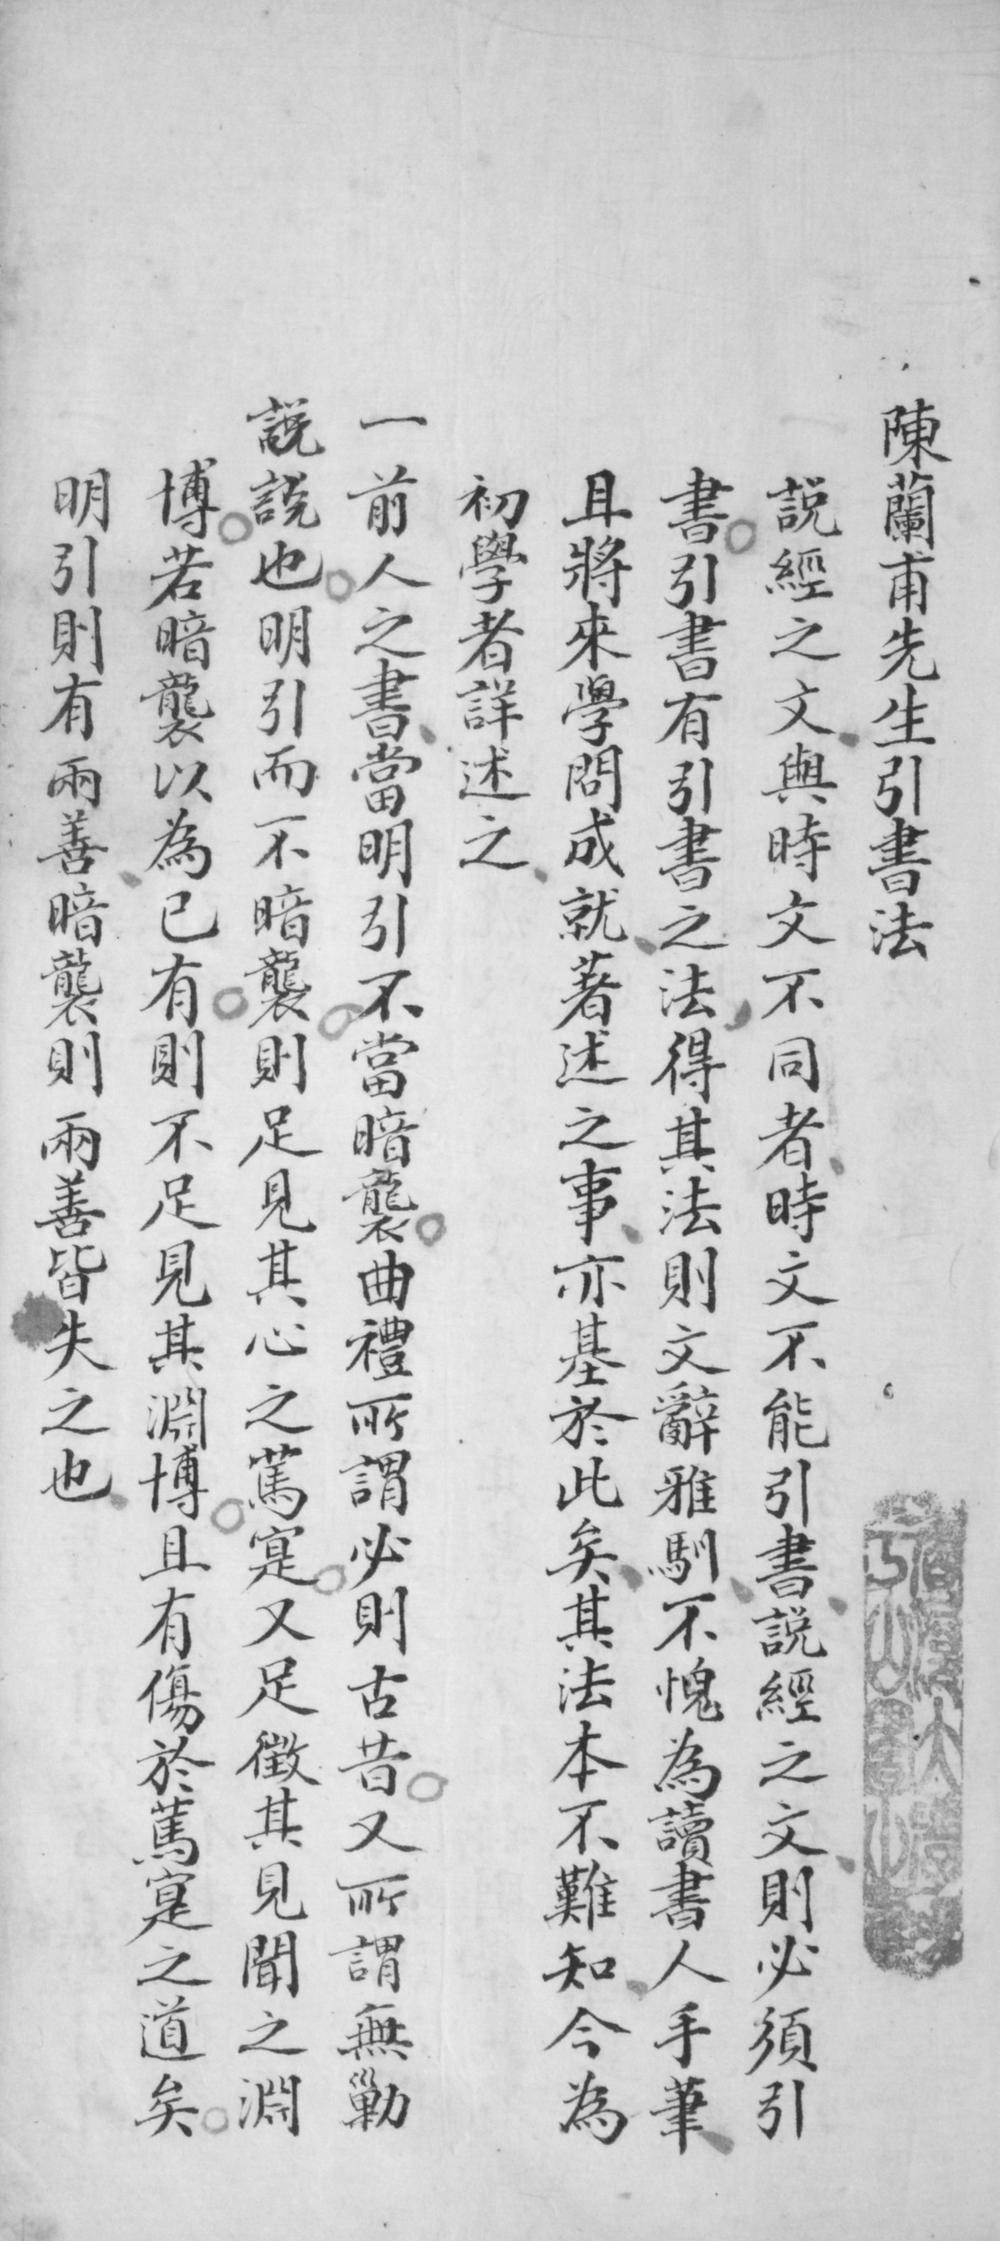 陳蘭甫先生引書法
説經之文與時文不同者時文不能引書説經之文則必須引
書引書有引書之法得其法則文辭雅馴不愧為讀書人手筆
且將來學問成就著述之事亦基於此矣其法本不難知今為
初學者詳述之
一前人之書當明引不當暗襲曲禮所謂必則古昔又所謂無勦
説説也明引而不暗襲則足見其心之篤寔又足徵其見聞之淵
博若暗襲以為已有則不足見其淵博且有傷於篤寔之道矣
明引則有兩善暗襲則兩善皆失之也